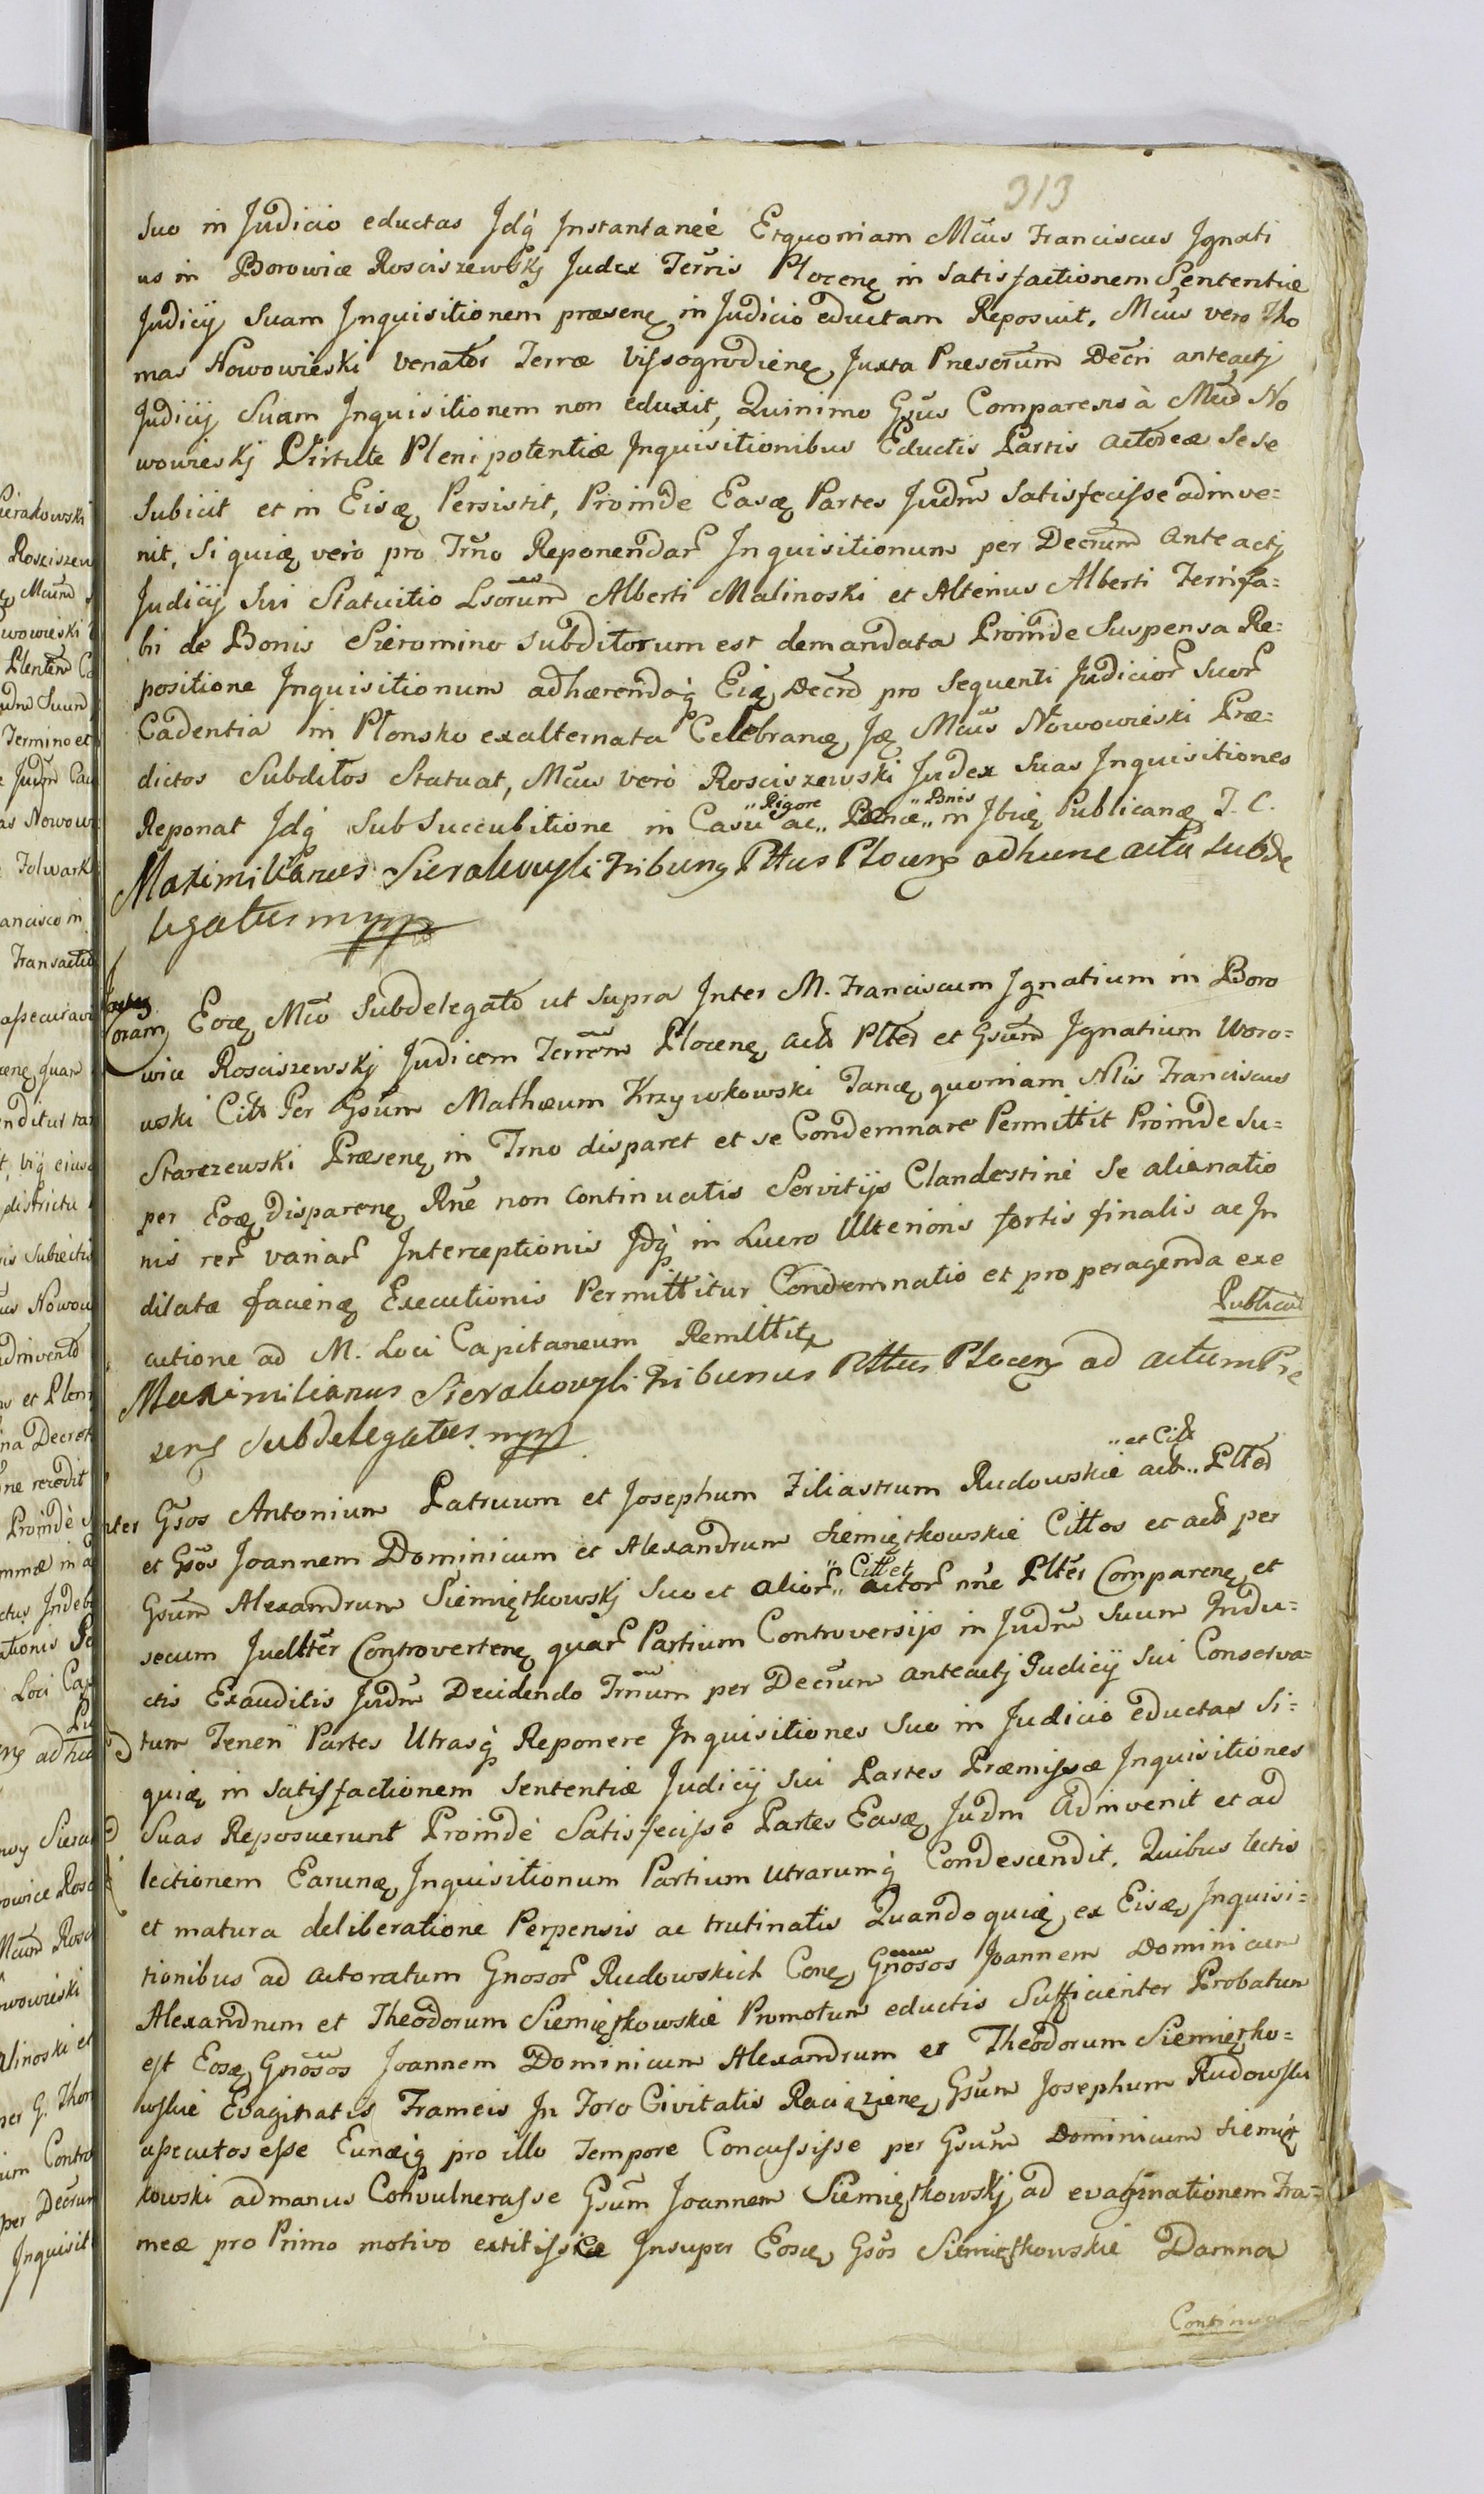 313
suo in Judicio eductas Jdq́ Instantaneè Etquoniam Mcus Franciscus Ignati
us in Borowice Rosciszewskj Judex Terris Plocenę in satisfactionem Sententiæ
Judicij Suam Inquisitionem præsenę in Judicio eductam Reposuit, Mcus vero Tho
mas Nowowieski Venator Terræ Vissogrodienę Juxta Prescrum Decri anteactj
Judicij Suam Inquisitionem non eduxit, Quinimo Gsus Comparens à Mcd No
wowieskj Virtute Plenipotentiæ Inquisitionibus Eductis Partis Actoreæ Sese
Subicit et in Eisę Persistit, Proinde Easę Partes Judm Satisfecisse adinve=
nit, Siquię vero pro Trno Reponendar Inquisitionum per Decrum Anteactj
Judicij Sui Statuitio Lsorum Alberti Malinoski et Alterius Alberti Terrifa=
bri de Bonis Sieromino Subditorum est demandata Proinde Suspensa Re=
positione Inquisitionum adhærendoq́ Eię Decrd pro Sequenti Judicior Suor
Cadentia in Plonsko exalternata Celebranę Ję Mcus Nowowieski Præ=
dictos Subditos Statuat, Mcus verò Rosciszewski Judex Suas Inquisitiones
Reponat Jdq́ Sub Succubitione in Casu "Rigore ac" Pænæ "Bnis" in Jbię Publicanę J. C.
Maximilianus Sierakowski Tribuny Pttus Plocens adhunc actu Subde
legatus mpp
Coram Eoę Mco Subdelegato ut Supra Inter M. Franciscum Ignatium in Boro
wice Rosciszewskj Judicem Terrem Plocenę act Plted et Gsum Ignatium Woro=
wski Citt Per Gsum Mathæum Krzywkowski Tancę quoniam Nlis Franciscus
Starczewski Præsenę in Trno disparet et se Condemnare Permittit Proinde Su=
per Eoę Disparenę Rne non Continuatis Servitijs Clandestinè Se alienatio
nis rer variar Interceptionis Jdq́ in Lucro Ulterioris fortis finalis ac In
dilatæ facienę Executionis Permittitur Condemnatio et pro peragenda exe
cutione ad M. Loci Capitaneum Remittitę
Publicat
Maximilianus Sierakowski Tribunus Pttus Plocens ad actum Præ
sens Subdelegatus mpp
Inter Gsos Antonium Patruum et Josephum Filiastrum Rudowskie act "et Citt" Plted
et Gsos Joannem Dominicum et Alexandrum Siemiętkowskie Cittos et act per
Gsum Alexandrum Siemiętkowskj Suo et alior "Citt et" actor nne Plter Comparenę et
secum Judltter Controvertenę quar Partium Controversijs in Judm Suum Indu=
ctis Exauditis Judm Decidendo Trnum per Decrum anteactj Judicij Sui Conserva=
tum Teneri Partes Utrasq́ Reponere Inquisitiones Suo in Judicio eductas Si=
quię in satisfactionem Sententiæ Judicij Sui Partes Præmissæ Inquisitiones
Suas Reposuerunt Proindè Satisfecisse Partes Easę Judm Adinvenit et ad
lectionem Earunę Inquisitionum Partium Utrarumq́ Condescendit. Quibus lectis
et matura deliberatione Perpensis ac trutinatis Quandoquię ex Eisę Inquisi=
tionibus ad Actoratum Gnosor Rudowskich Conę Gnosos Joannem Dominicum
Alexandrum et Theodorum Siemiętkowskie Promotum eductis Sufficienter Probatum
est Eosę Gnosos Joannem Dominicum Alexandrum et Theodorum Siemiętko=
wskie Evaginatis Frameis In Foro Civitatis Raciązienę Gsum Josephum Rudowski
assecutos esse Eunęq́ pro illo Tempore Concussisse per Gsum Dominicum Siemięt
kowski ad manus Convulnerasse Gsum Joannem Siemiętkowskj ad evaginationem Fra=
meæ pro Primo motivo extitisse Insuper Eosę Gsos Siemiętkowskie Damna